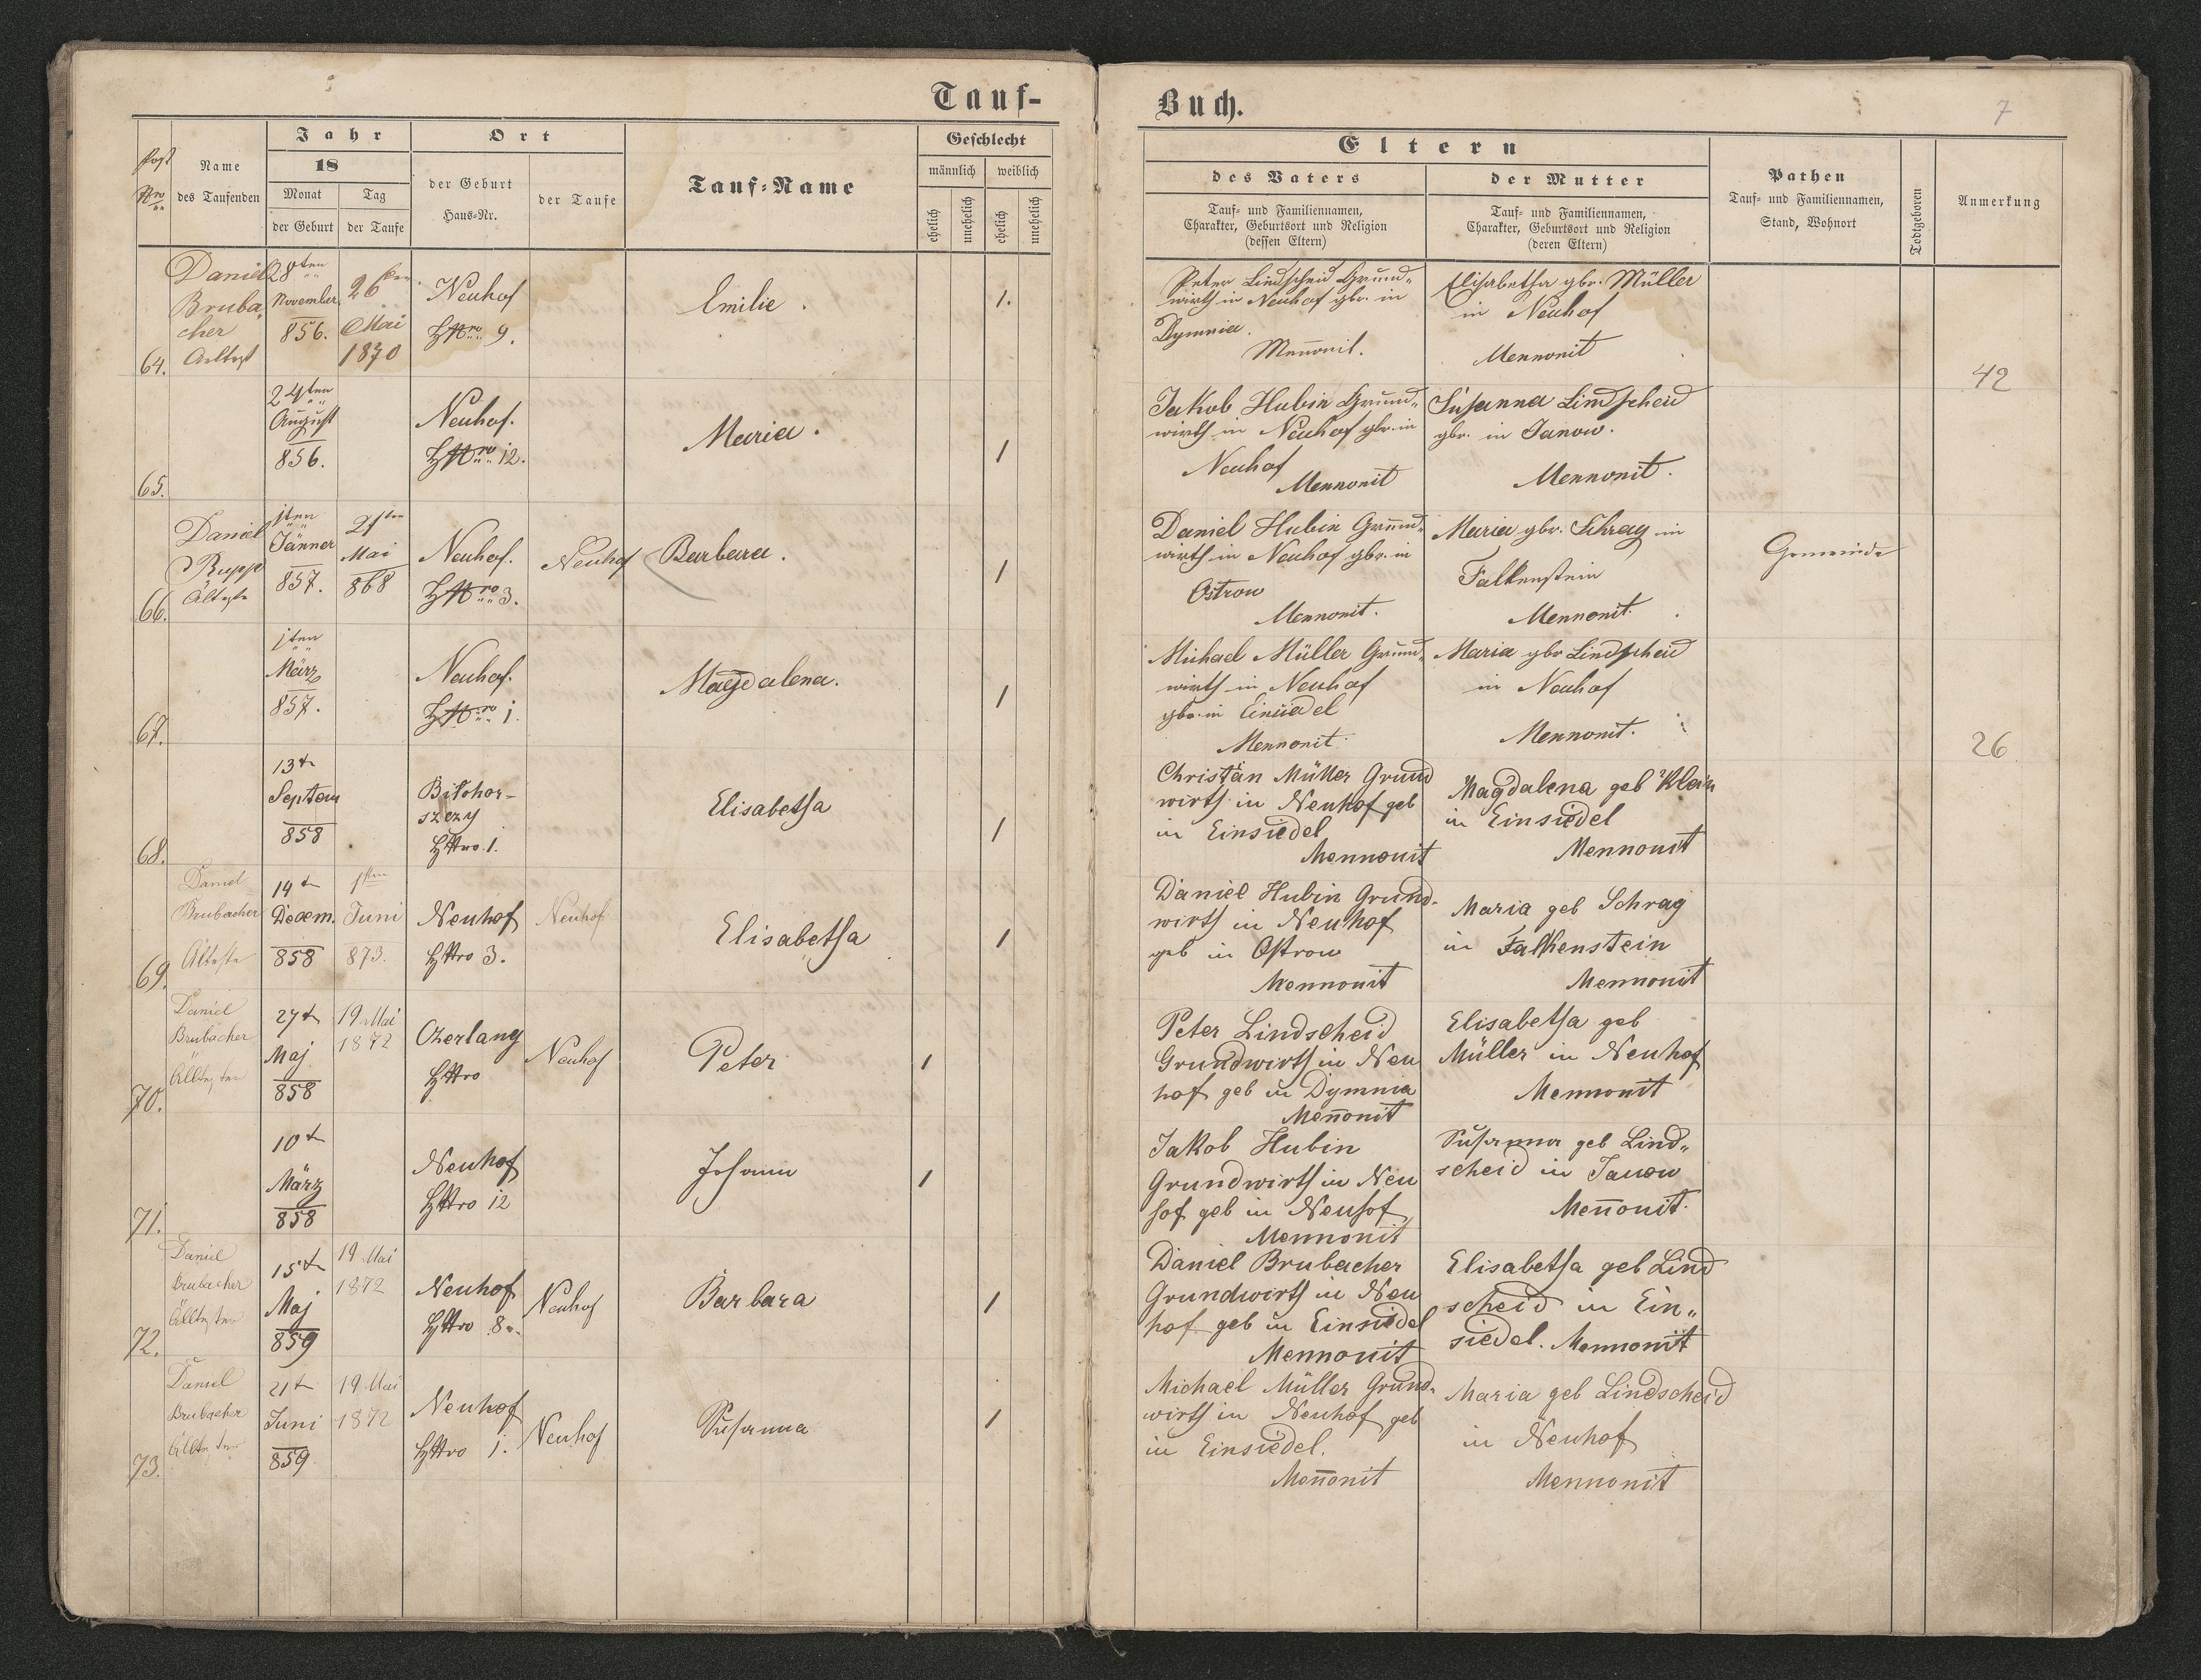 Tauf-
Buch.
7
Post
Nro
Name
des Taufenden
Jahr
18
Monat
der Geburt
Tag
der Taufe
Ort
der Geburt
Haus-Nr.
der Taufe
Tauf-Name
Geschlecht
männlich
weiblich
ehelich
unehelich
ehelich
unehelich
Eltern
des Vaters
Tauf- und Familiennamen,
Charakter, Geburtsort und Religion
(dessen Eltern)
der Mutter
Tauf- und Familiennamen,
Charakter, Geburtsort und Religion
(deren Eltern)
Pathen
Tauf- und Familiennamen,
Stand, Wohnort
Todtgeboren
Anmerkung
64.
Daniel
Bruba-
cher
Aeltest
28ten
November
856.
26ten
Mai
1870
Neuhof
HNro 9.
Emilie.
1.
Peter Lindscheid Grund-
wirth in Neuhof gbr. in
Dymnia.
Mennonit.
Elisabetha gbr. Müller
in Neuhof
Mennonit
42
65.
24ten
August
856.
Neuhof.
HNro 12.
Maria.
1
Jakob Hubin Grund-
wirth in Neuhof gbr. in
Neuhof
Mennonit
Susanna Lindscheid
gbr. in Janow.
Mennonit.
66.
Daniel
Rupp
Älteste
1ten
Jänner
857.
21ten
Mai
868
Neuhof.
HNro 3.
Neuhof
Barbara.
1
Daniel Hubin Grund-
wirth in Neuhof gbr. in
Ostrow
Mennonit.
Maria gbr. Schrag in
Falkenstein
Mennonit.
Gemeinde
67.
1ten
März
857.
Neuhof.
HNro 1.
Magdalena.
1
Michael Müller Grund-
wirth in Neuhof
gbr. in Einsiedel
Mennonit
Maria gbr Lindscheid
in Neuhof
Mennonit.
26
68.
13t
Septem
858
Bilohor-
szczy
HNro. 1.
Elisabetha
1
Christian Müller Grund
wirth in Neuhof geb
in Einsiedel
Mennonit
Magdalena geb Klein
in Einsiedel
Mennonit
69.
Daniel
Brubacher
Älteste
14t
Decem.
858
1ten
Juni
873.
Neuhof
HNro 3.
Neuhof
Elisabetha
1
Daniel Hubin Grund-
wirth in Neuhof
geb in Ostrow
Mennonit
Maria geb Schrag
in Falkenstein
Mennonit
70.
Daniel
Brubacher
Älltester
27t
Maj
858
19 Mai
1872
Ozerlang
HNro
Neuhof
Peter
1
Peter Lindscheid
Grundwirth in Neu
hof geb in Dymnia
Mennonit
Elisabetha geb
Müller in Neuhof
Mennonit
71.
10t
März
858
Neuhof
HNro 12
Johann
1
Jakob Hubin
Grundwirth in Neu
hof geb in Neuhof
Mennonit
Susanna geb Lind-
scheid in Janow
Mennonit.
72.
Daniel
Brubacher
Älltester
15t
Maj
859
19 Mai
1872
Neuhof
HNro 8.
Neuhof
Barbara
1
Daniel Brubacher
Grundwirth in Neu
hof geb in Einsiedel
Mennonit
Elisabetha geb Lind
scheid in Ein-
siedel. Mennonit
73.
Daniel
Brubacher
Älltester
21t
Juni
859
19 Mai
1872
Neuhof
HNro 1.
Neuhof
Susanna
1
Michael Müller Grund-
wirth in Neuhof geb
in Einsiedel.
Mennonit
Maria geb Lindscheid
in Neuhof
Mennonit